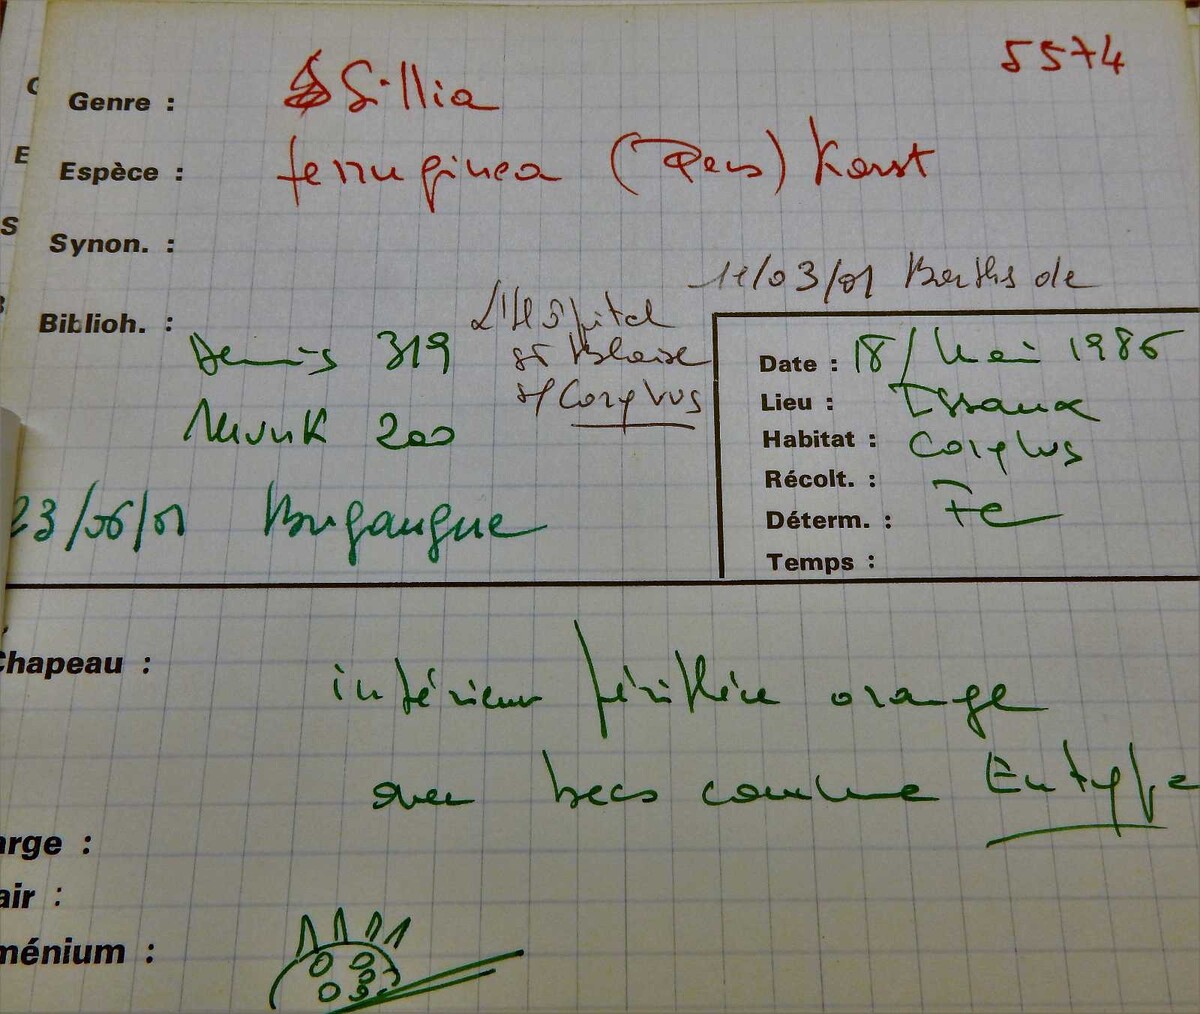 5574
Genre : Sillia
Espèce : ferruginea (Pers) Karst
Synon. :
11/03/01 Berths de
L'Hôpital
st Blaise
s/ Corylus
Biblioh. :
Dennis 319
Munk 200
23/06/01 Burgaugne
Date : 18/Mai 1986
Lieu : Issaux
Habitat : Corylus
Récolt. :
Déterm. : Fc
Temps :
Chapeau : intérieur périthèce orange
avec becs comme Eutype
arge :
air :
ménium :